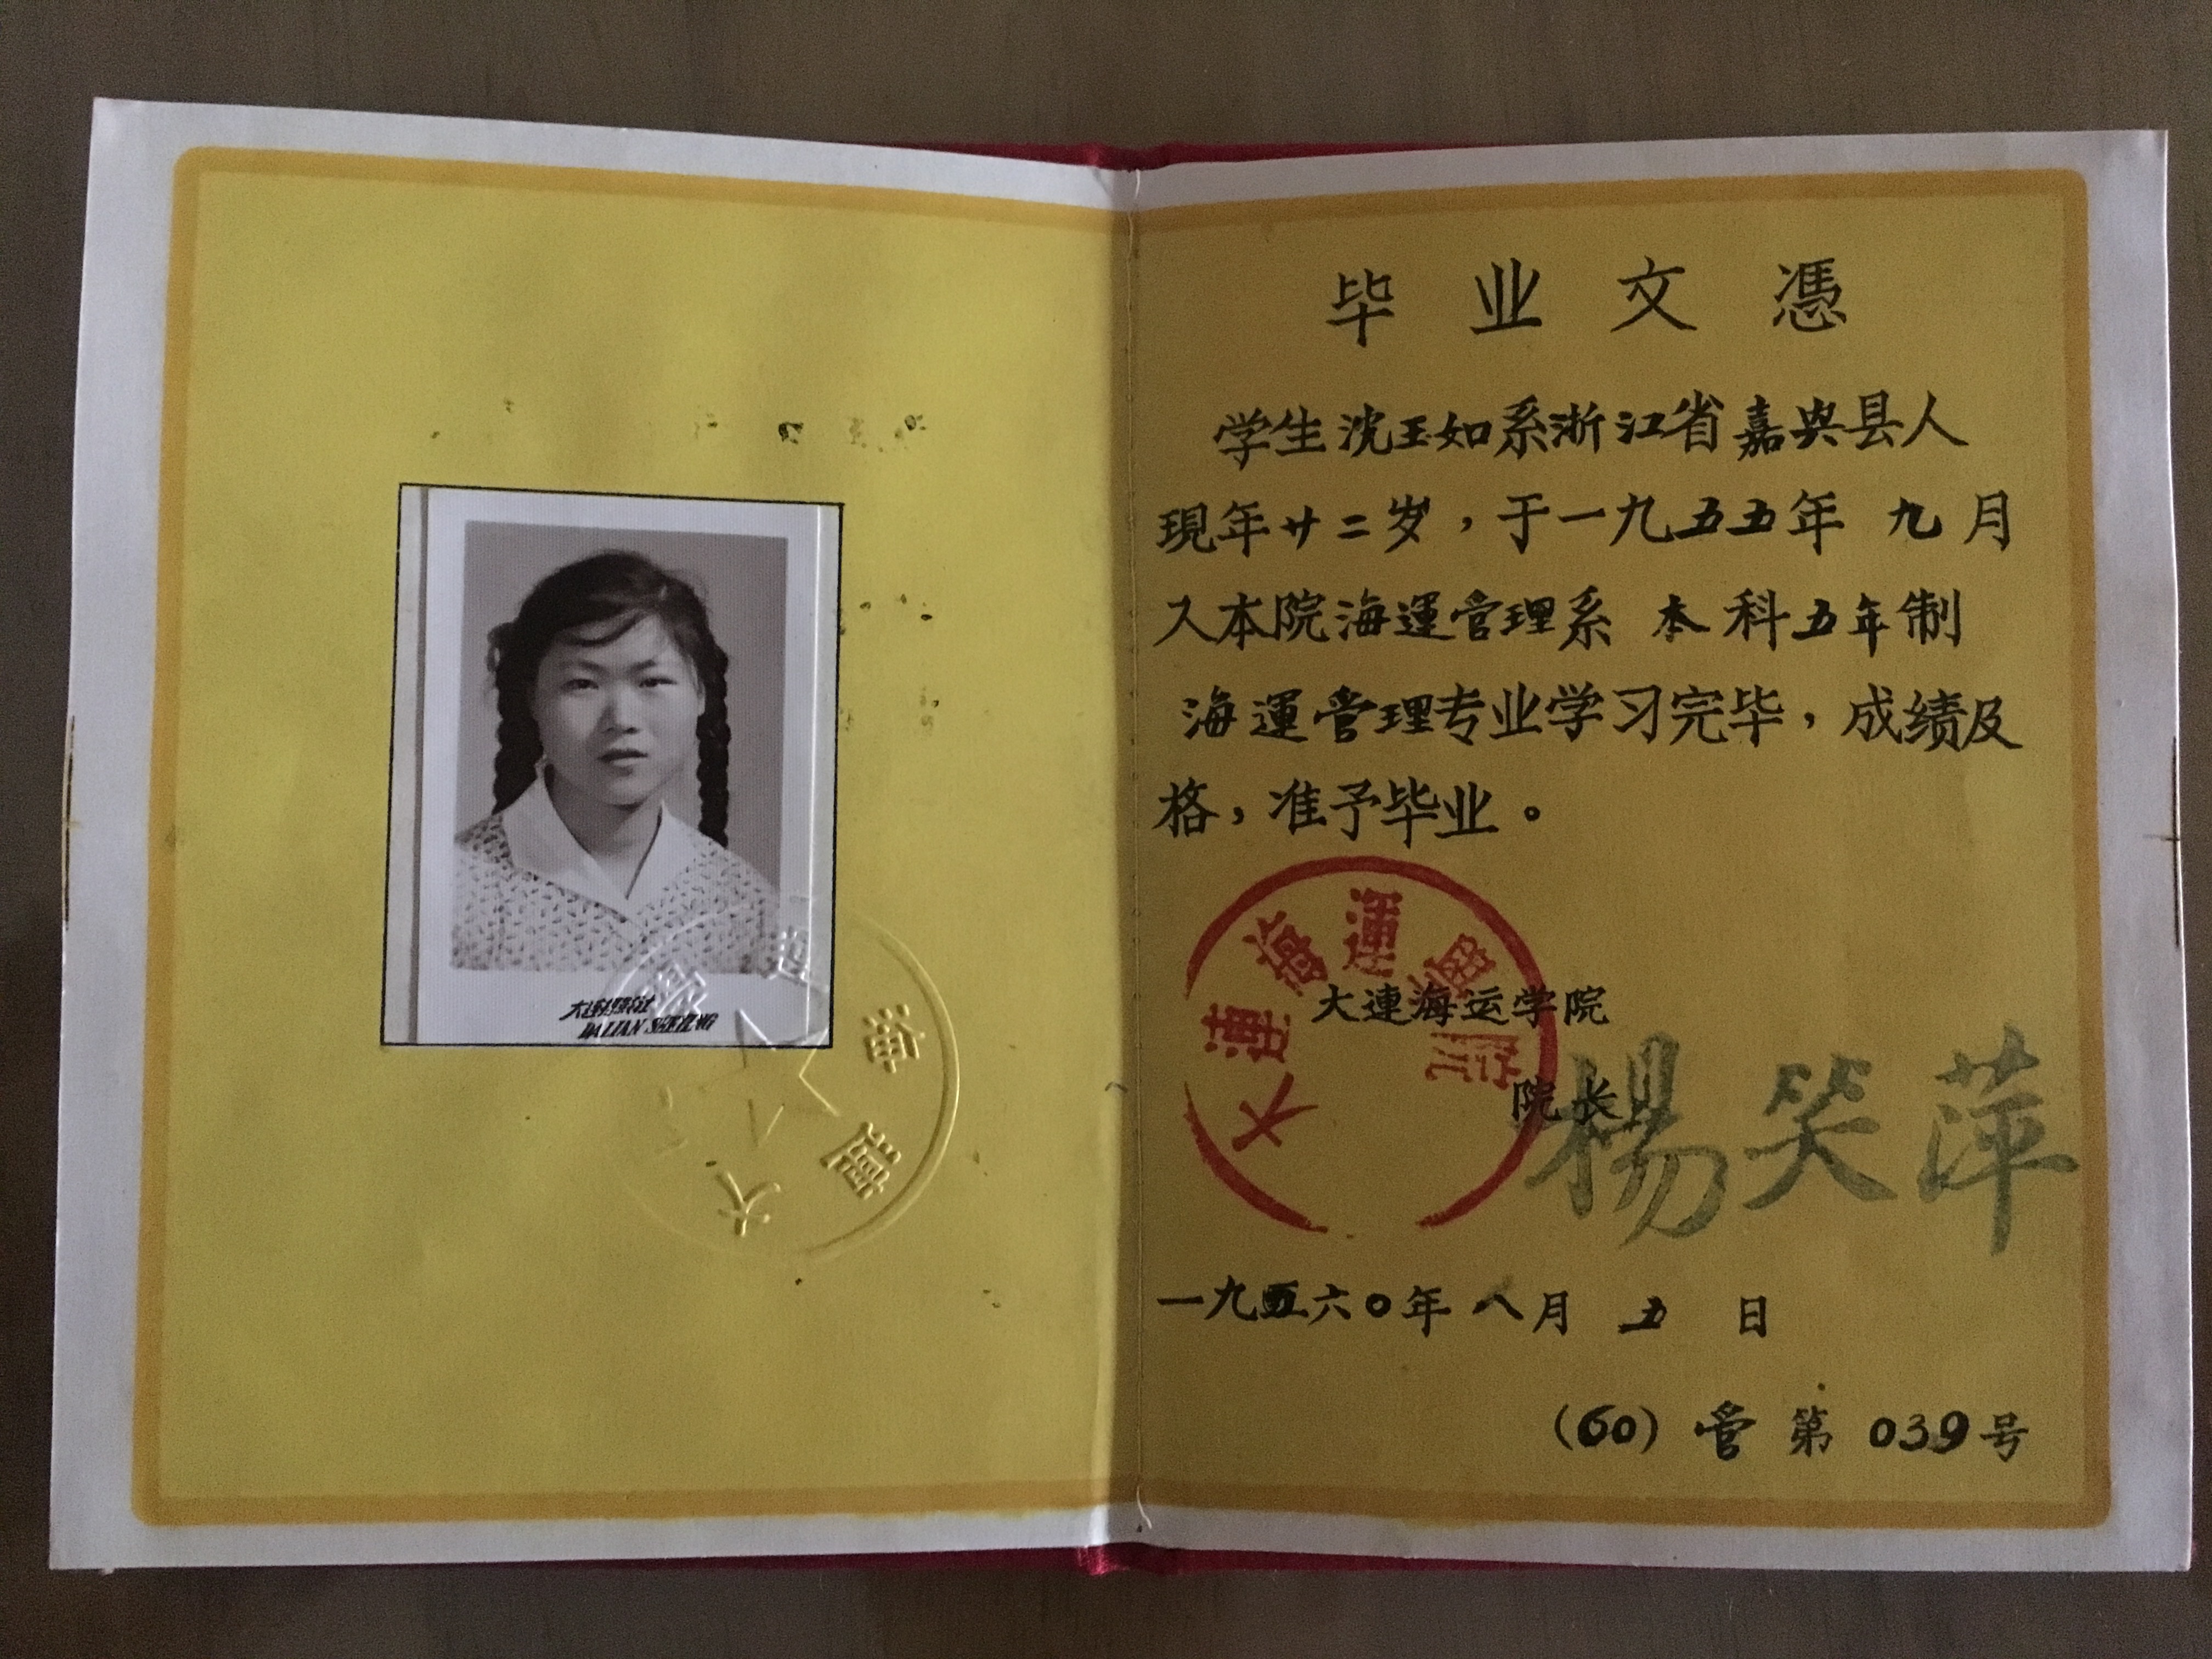 大連照相社
DALIAN
大連海運
毕业文憑
学生沈玉如系浙江省嘉兴县人
現年廿二岁，于一九五五年 九月
入本院海運管理系 本科五年制
海運管理专业学习完毕，成绩及
格，准予毕业。
大連海運學院
大連海运学院
院长 楊笑萍
一九六〇年八月五日
(60) 管 第 039号